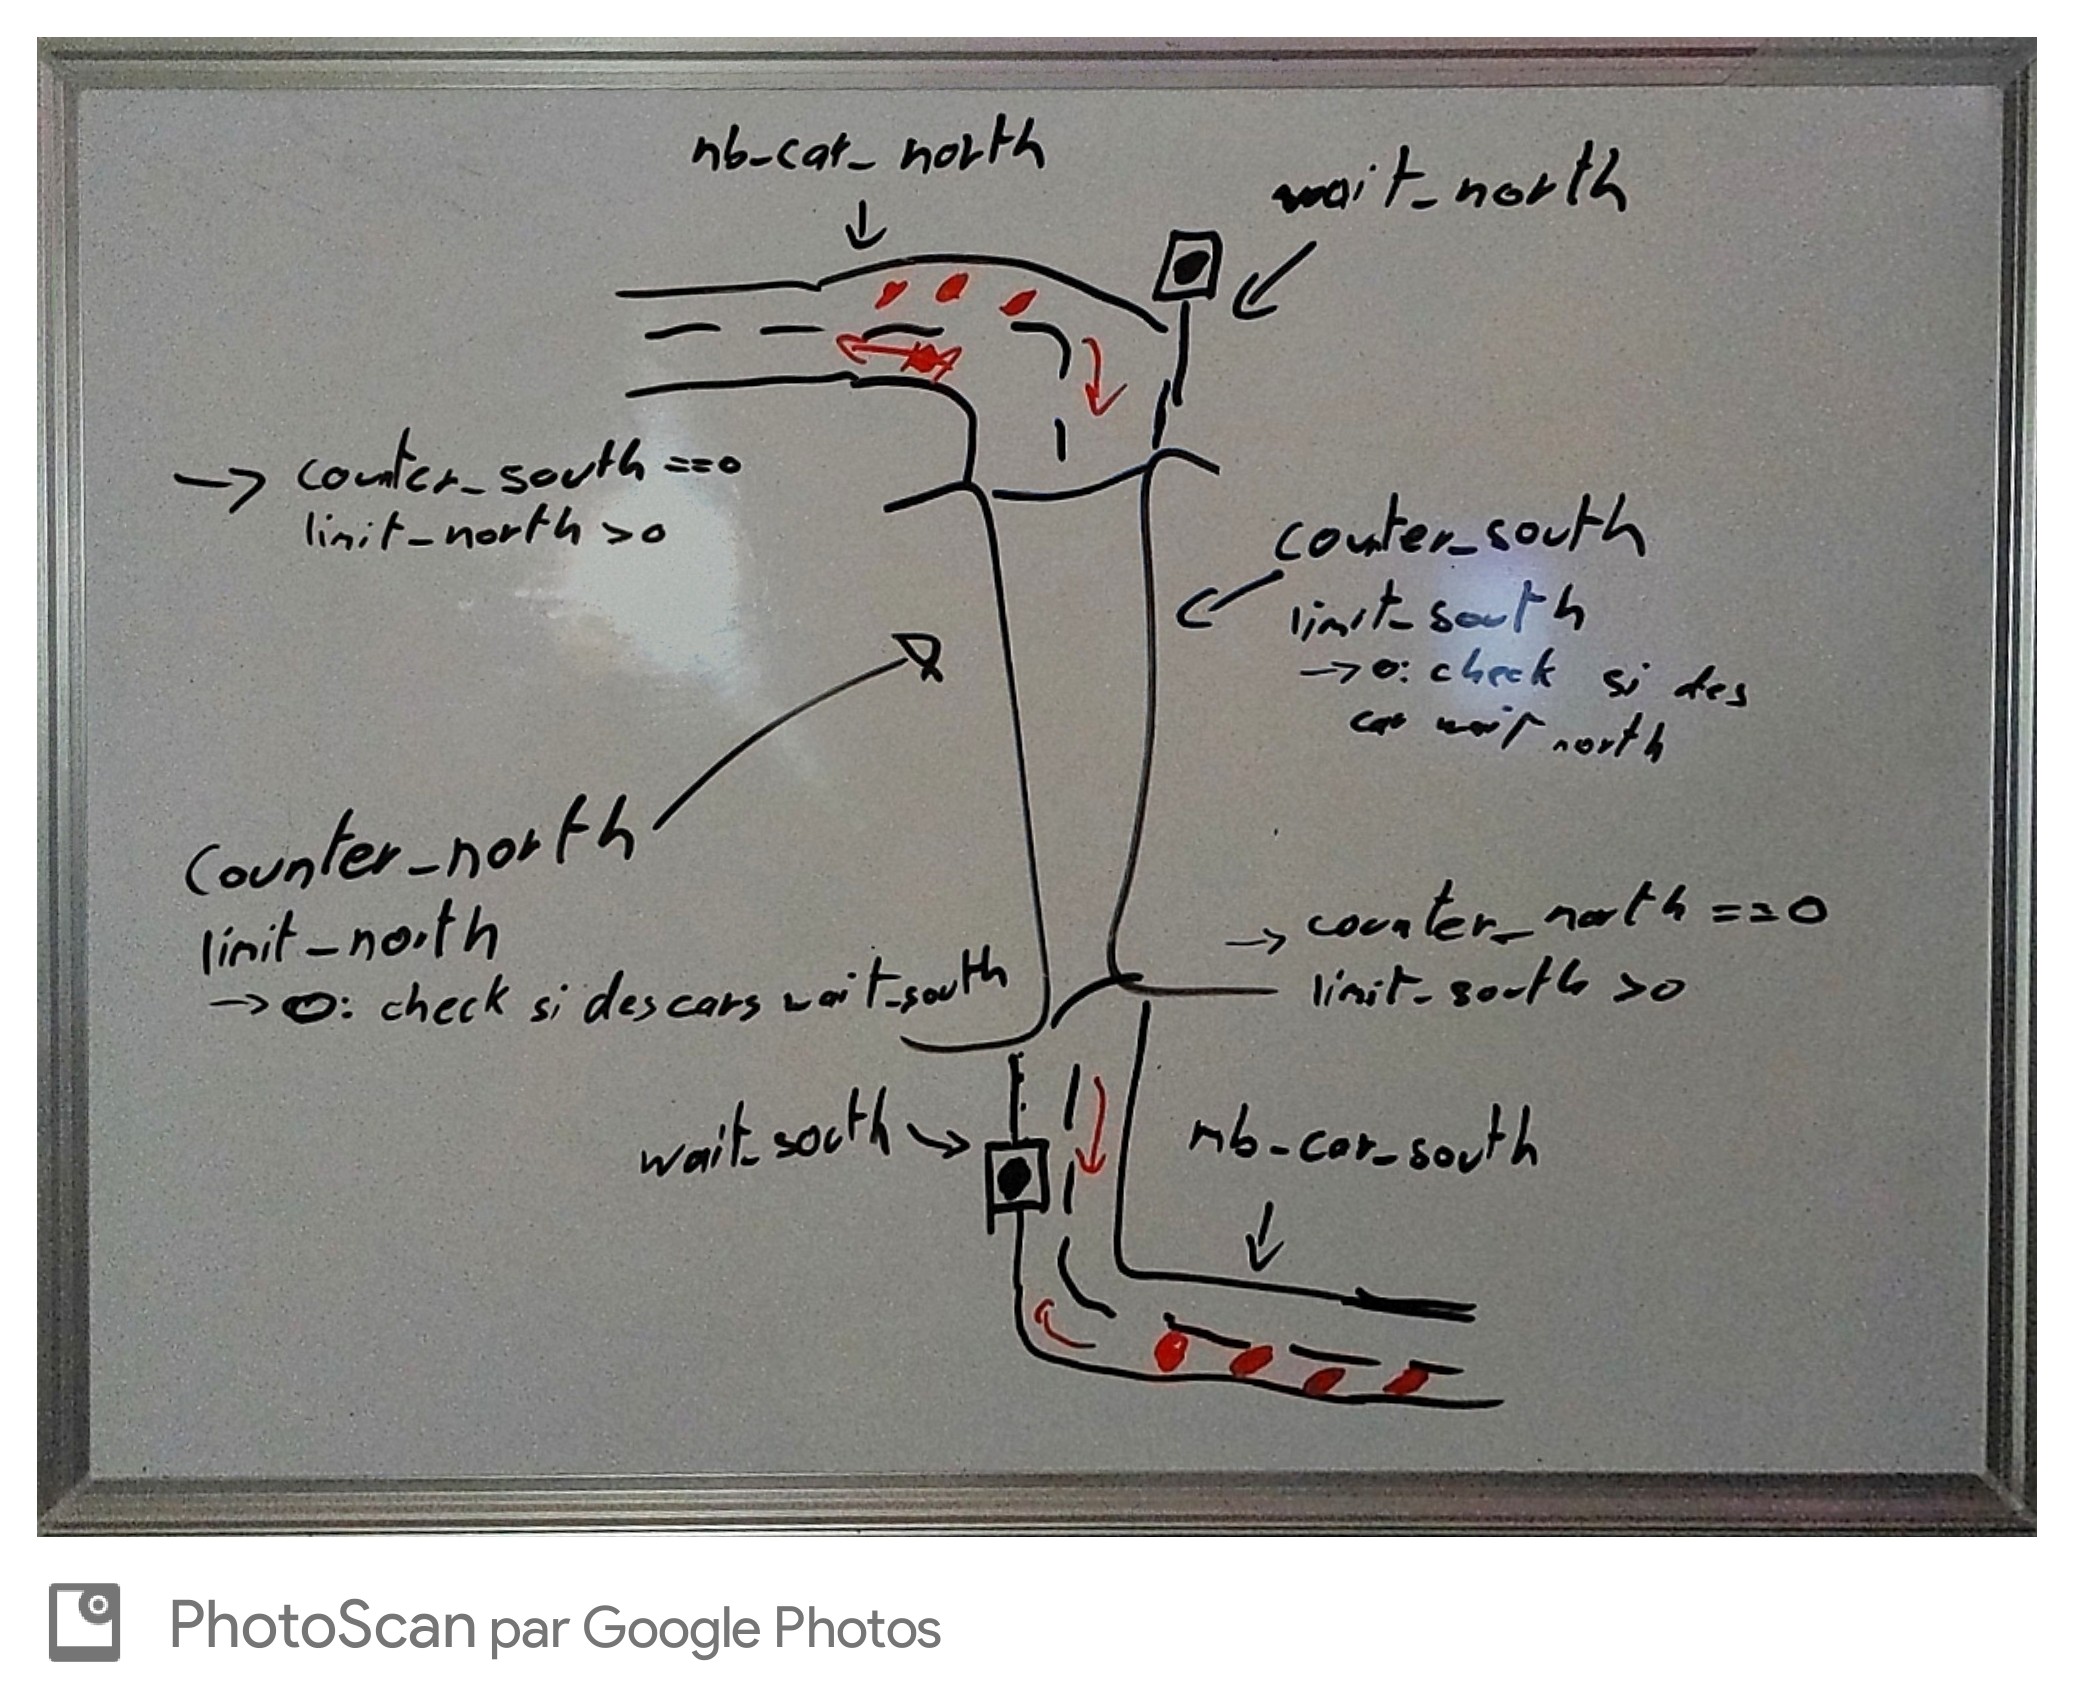 nb_car_north
wait_north
→ counter_south ==0
limit_north >0
counter_south
limit_south
→ 0: check si des
car wait north
Counter_north
limit_north
→ 0: check si des cars wait_south
→ counter_north ==0
limit_south >0
wait_south
nb_car_south
PhotoScan par Google Photos